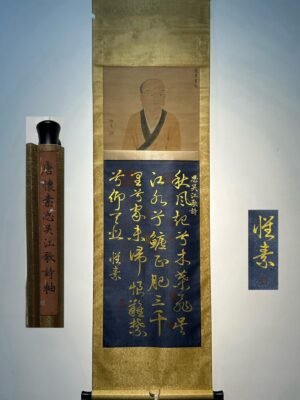 唐懷素思吴江歌詩軸
思吴江歌詩
秋風起兮木葉飛吴
江水兮鱸正肥三千
里兮家未歸恨難禁
兮仰天悲 懷素
懷素